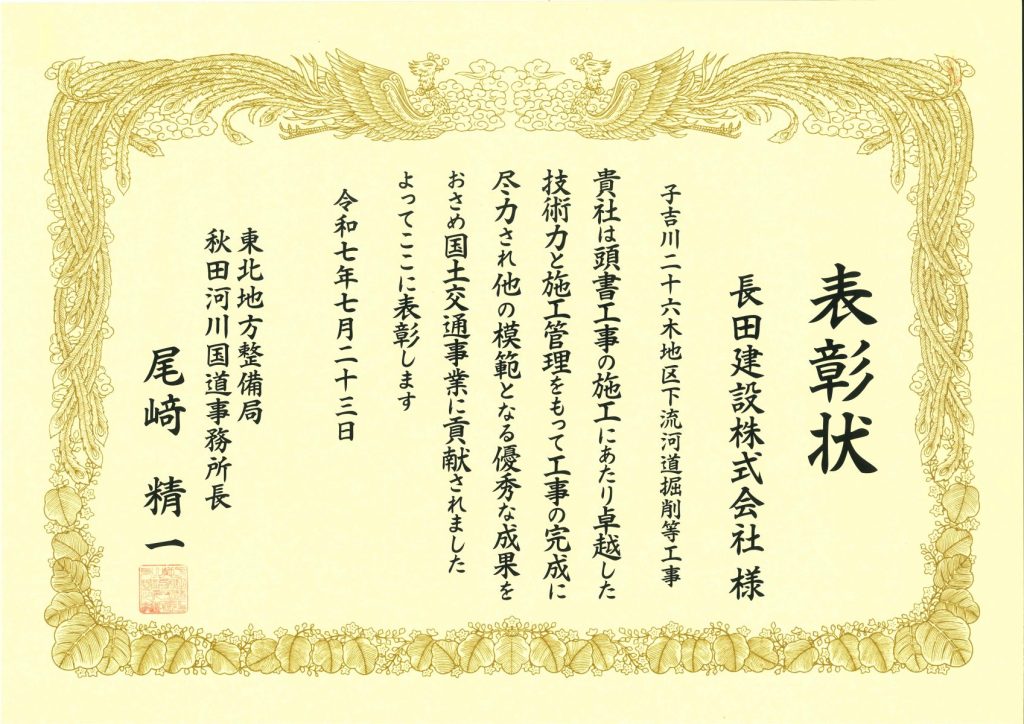 表彰状
長田建設株式会社 様
子吉川二十六木地区下流河道掘削等工事
貴社は頭書工事の施工にあたり卓越した
技術力と施工管理をもって工事の完成に
尽力され他の模範となる優秀な成果を
おさめ国土交通事業に貢献されました
よってここに表彰します
令和七年七月二十三日
東北地方整備局
秋田河川国道事務所長
尾﨑 精一